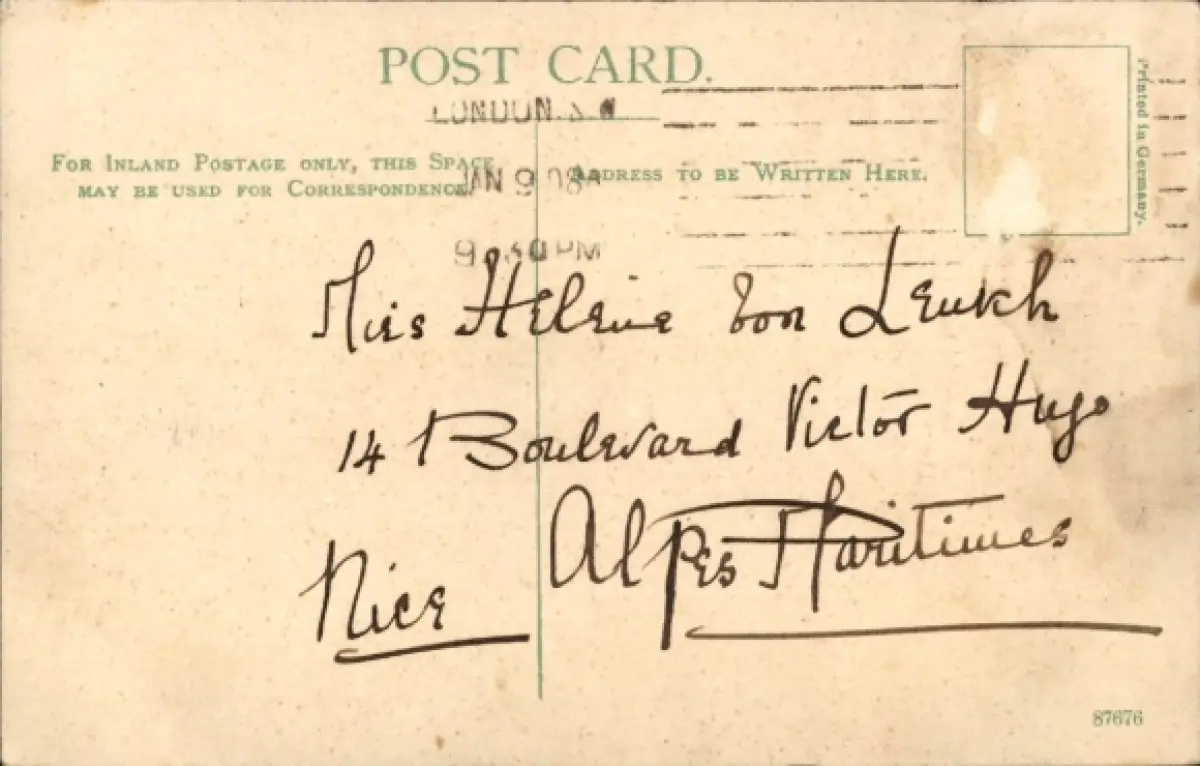 POST CARD.
LONDON. S W
JAN 9 08
9.30 PM
FOR INLAND POSTAGE ONLY, THIS SPACE
MAY BE USED FOR CORRESPONDENCE.
ADDRESS TO BE WRITTEN HERE.
Printed in Germany.
Miss Helene von
14 Boulevard Victor Hugo
Nice Alpes Maritimes
87676